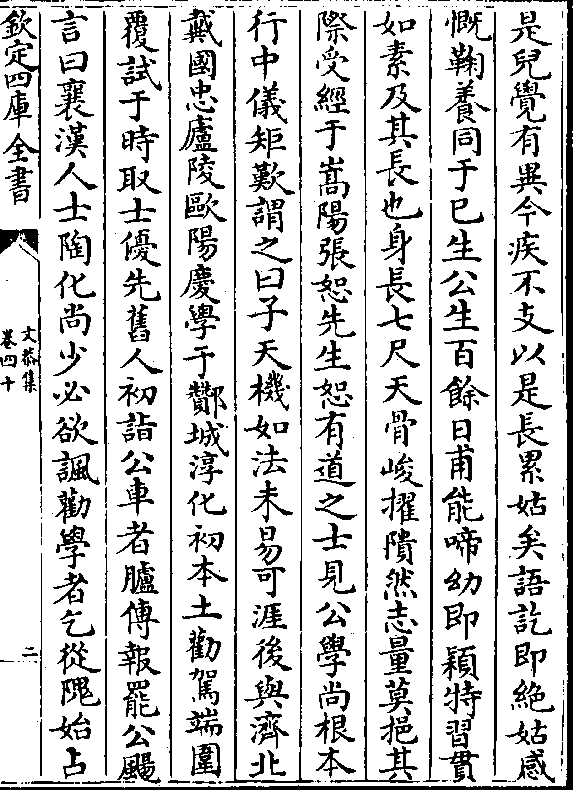 是兒覺有異今疾不支以是長累姑矣語訖即絶姑感
慨鞠養同于已生公生百餘日甫能啼幼即穎特習貫
如素及其長也身長七尺天骨峻擢隤然志量莫挹其
際受經于嵩陽張恕先生恕有道之士見公學尚根本
行中儀矩歎謂之曰子天機如法未易可涯後與濟北
戴國忠廬陵歐陽慶學于酇城淳化初本土勸駕端圍
覆試于時取士優先舊人初詣公車者臚傳報罷公颺
言曰襄漢人士陶化尚少必欲諷勸學者乞從隗始占
欽定四庫全書
文恭集
卷四十
二